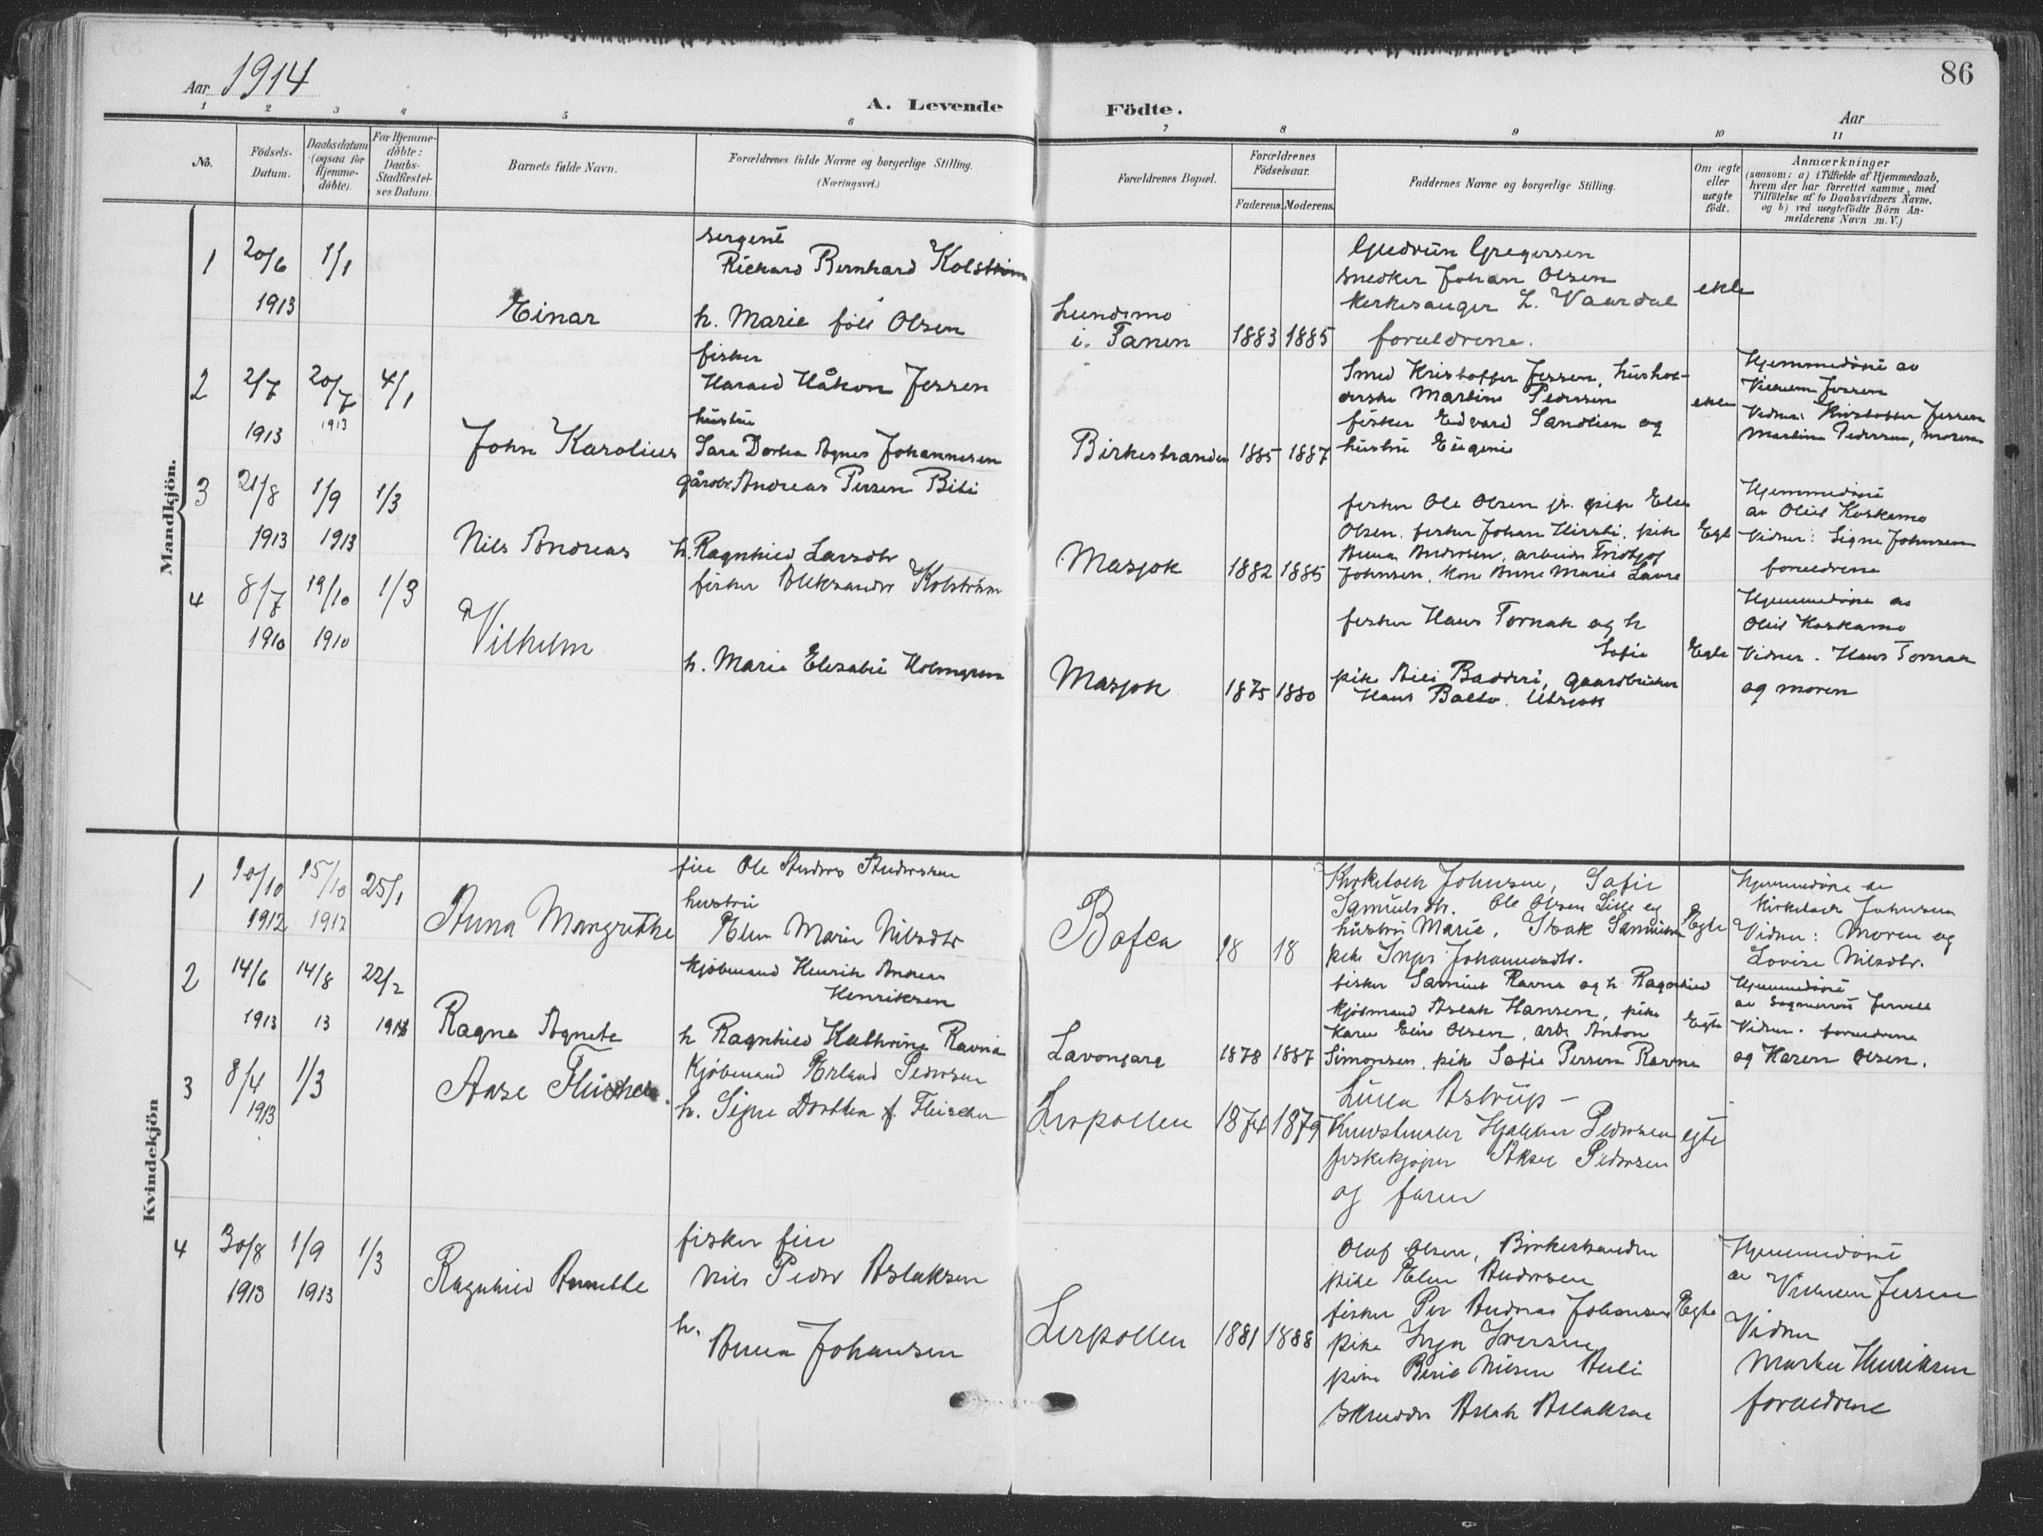 Aar 1914
A. Levende Födte.
Aar
86
1 2 3 4 5 6 7 8 9 10 11
No.
Födsels-Datum.
Daabsdatum (ogsaa for Hjemme-döbte).
For Hjemme-döbte: Daabs-Stadfæstel-ses Datum.
Barnets fulde Navn.
Forældrenes fulde Navne og borgerlige Stilling.
(Næringsvei.)
Forældrenes Bopæl.
Forældrenes Födselsaar.
Faderens. Moderens.
Faddernes Navne og borgerlige Stilling.
Om ægte eller uægte födt.
Anmærkninger
(saasom: a) i Tilfælde af Hjemmedaab,
hvem der har forrettet samme, med
Tilföielse af to Daabsvidners Navne.
og b) ved uægtefödte Börn An-
melderens Navn m. V.)
Mandkjön.
1 20/6 1913 1/1
Einar
sergent
Rickard Bernhard Kolström
h. Marie född Olsen
Lundsmo
i. Tanen
1883 1885
Gudrun Gregersen
snedker Johan Olsen
kirkesanger L. Vaardal
forældrene.
ekte
2 2/7 1913 20/7 1913 4/1
John Karolius
fisker
Harald Håkon Jessen
hustru
Sara Dortea Agnes Johannesen
Birkestranden
1885 1887
Smed Kristoffer Jessen, hushol-
derske Martine Pedersen
fisker Edvard Sandlien og
hustru Eugenie
ekte
Hjemmedöbt av
Vilhelm Jessen
Vidner: Kristoffer Jessen
Martine Pedersen, moren
3 21/8 1913 1/9 1913 1/3
Nils Andreas
gårdbr. Andreas Persen Biti
h. Ragnhild Larsdtr
Masjok
1882 1885
fisker Ole Olsen jr. pike Elen
Olsen, fisker Johan Hirsti, pike
Anna Andersen, arbeider Fridtjof
Johnsen, kone Anne Marie Laura
Egte
Hjemmedöbt
av Oluf Koskamo
Vidner: Signe Johnsen
forældrene
4 8/7 1910 19/10 1910 1/3
Vilhelm
fisker Aleksander Kolström
h. Marie Elisabet Holmgren
Masjok
1875 1880
fisker Hans Tornak og h
Sofie
pike Aili Badderi, gaardbruker
Hans Balto. Utsjok
Egte
Hjemmedöbt av
Oluf Koskamo
Vidner. Hans Tornak
og moren
Kvindekjön
1 10/10 1912 15/10 1912 25/1
Anna Margrethe
fin Ole Anders Andersen
hustru
Elen Marie Nilsdtr
Bafea
18 18
Kirketolk Johnsen, Sofie
Samuelsdtr. Ole Olsen Lille og
hustru Marie, Isak Samuelsen
pike Inger Johannesdtr.
Egte
Hjemmedöbt av
kirketolk Johnsen
Vidner: Moren og
Lovise Nilsdtr.
2 14/6 1913 14/8 13 22/2 1913
Ragna Agnete
kjøbmand Henrik Andreas
Henriksen
h Ragnhild Kathrine Ravna
Lavonjarg
1878 1887
fisker Samuel Ravna og h. Ragnhild
kjøbmand Aslak Hansen, pike
Karen Elise Olsen, arb. Anton
Simonsen, pike Sofie Persen Ravna
Egte
Hjemmedöbt
av Sogneprest Jervell
Vidner. forældrene
og Karen Olsen.
3 8/4 1913 1/3
Aase Fleischer.
Kjøbmand Erland Pedersen
h. Signe Dorthea f. Fleischer
Lerpollen
1874 1879
Lulla Astrup -
Kunstmaler Hjalmar Pedersen
fiskekjøper Aksel Pedersen
og faren
egte
4 30/8 1913 1/9 1913 1/3
Ragnhild Annethe
fisker fin
Nils Peder Aslaksen
h.
Anna Johansen
Lerpollen
1881 1888
Olaf Olsen, Birkestranden
pike Elen Andersen
fisker Per Andreas Johansen
pike Inga Iversen
pike Berit Nilsen Anli
skrædder Aslak Aslaksen
Egte
Hjemmedöbt
av Vilhelm Jessen
Vidner
Marthe Henriksen
forældrene